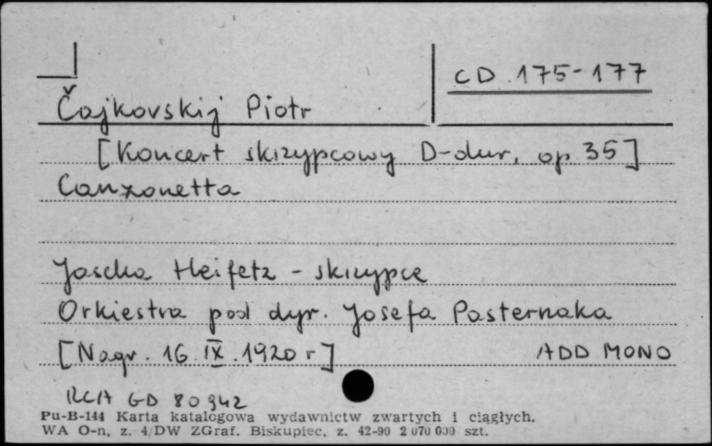 CD 175-177
Čajkovskij Piotr
[Koncert skrzypcowy D-dur, op. 35]
Canzonetta
Jascha Heifetz - skrzypce
Orkiestra pod dyr. Josefa Pasternaka
[Nagr. 16.IX.1920 r]
ADD MONO
RCA GD 80942
Pu-B-144 Karta katalogowa wydawnictw zwartych i ciągłych.
WA O-n, z. 4/DW ZGraf. Biskupiec, z. 42-90 2 070 000 szt.